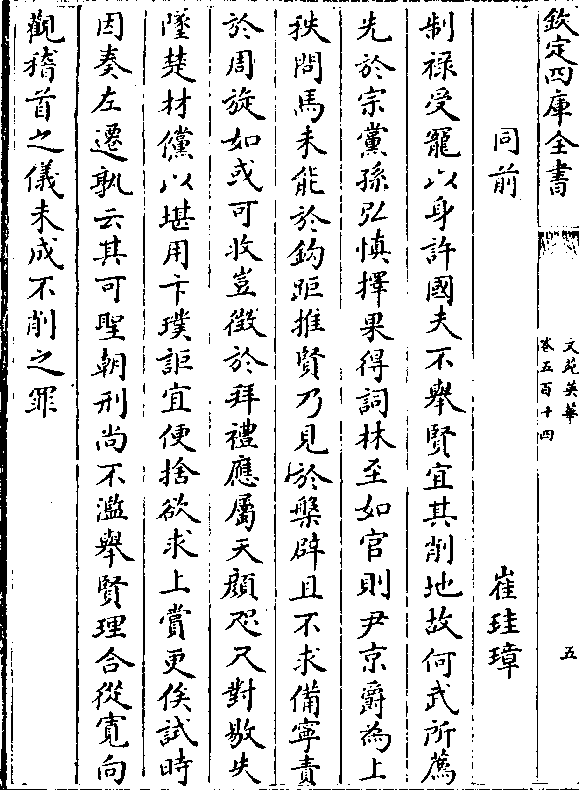 欽定四庫全書
文苑英華
卷五百十四
五
同前
崔珪璋
制禄受寵以身許國夫不舉賢宜其削地故何武所薦
先於宗黨孫弘慎擇果得詞林至如官則尹京爵為上
秩問馬未能於鈎距推賢乃見於槃辟且不求備寧責
於周旋如或可收豈徵於拜禮應屬天顔咫尺對敭失
墜楚材儻以堪用卞璞詎宜便捨欲求上賞更俟試時
因奏左遷孰云其可聖朝刑尚不濫舉賢理合從寛向
觀稽首之儀未成不削之罪